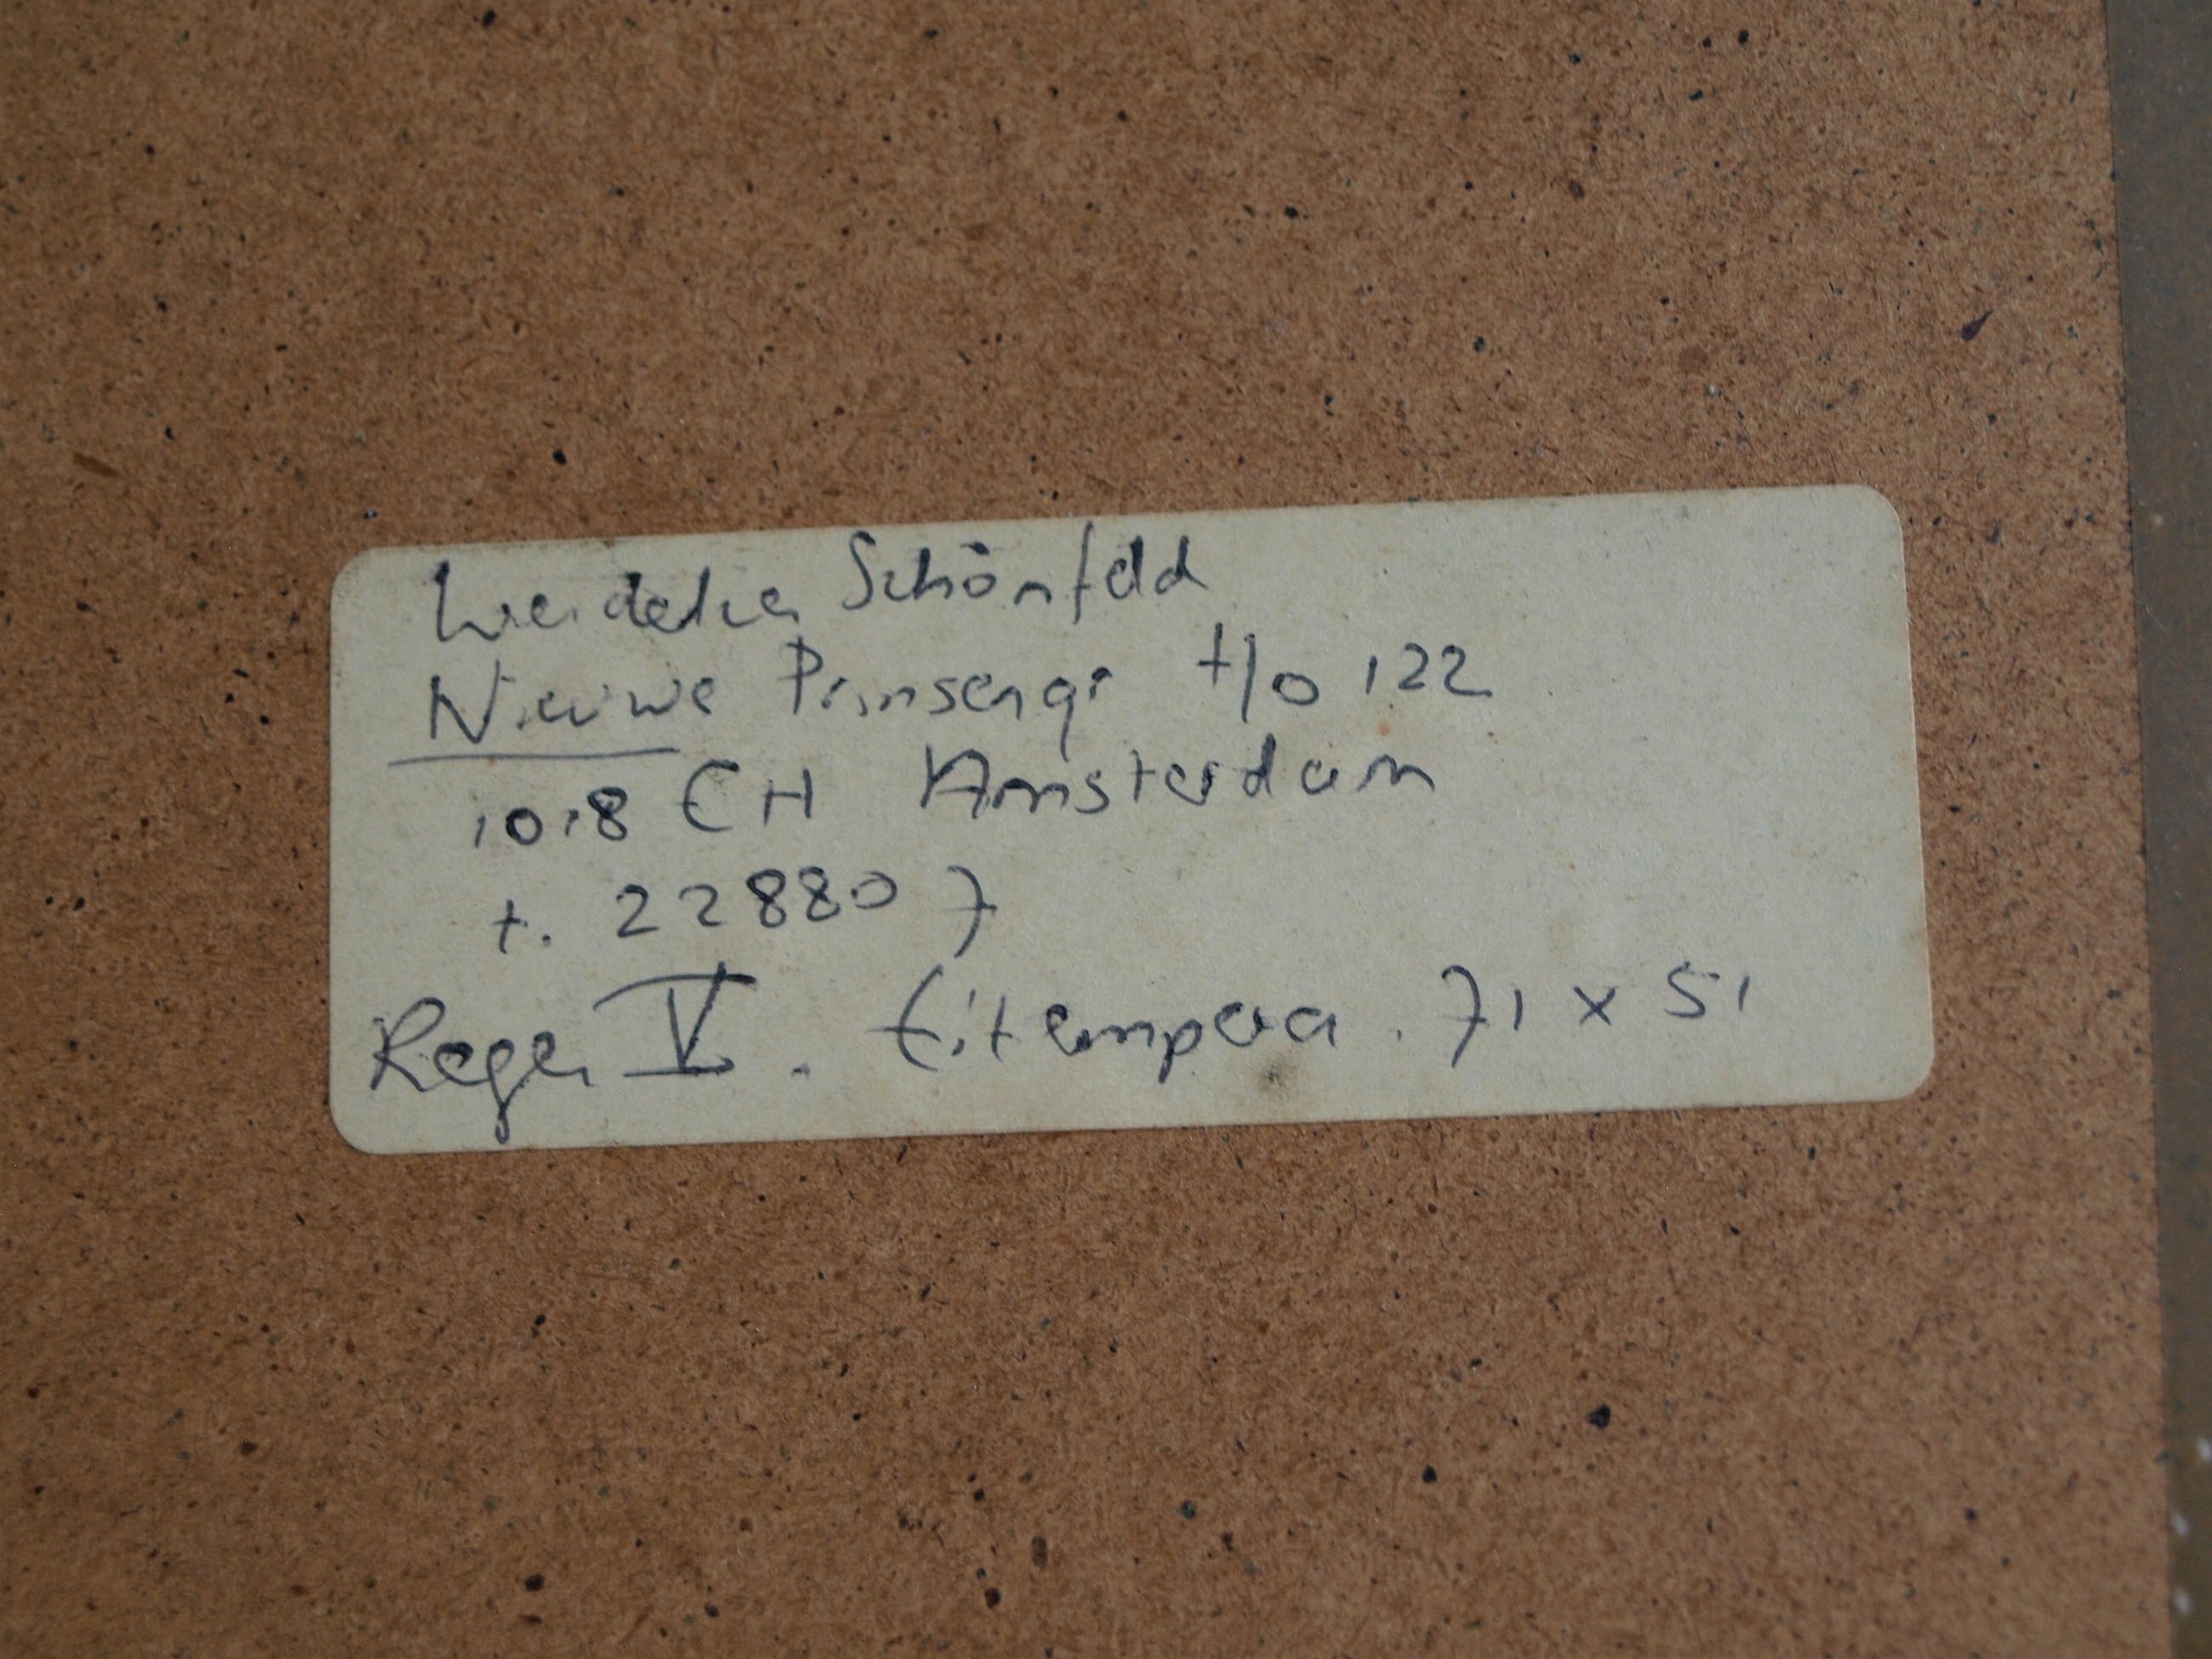 Wendelien Schönfeld
Nieuwe Prinsengr t/o 122
1018 EH Amsterdam
t. 228807
Regen V. Eitempera. 71 x 51